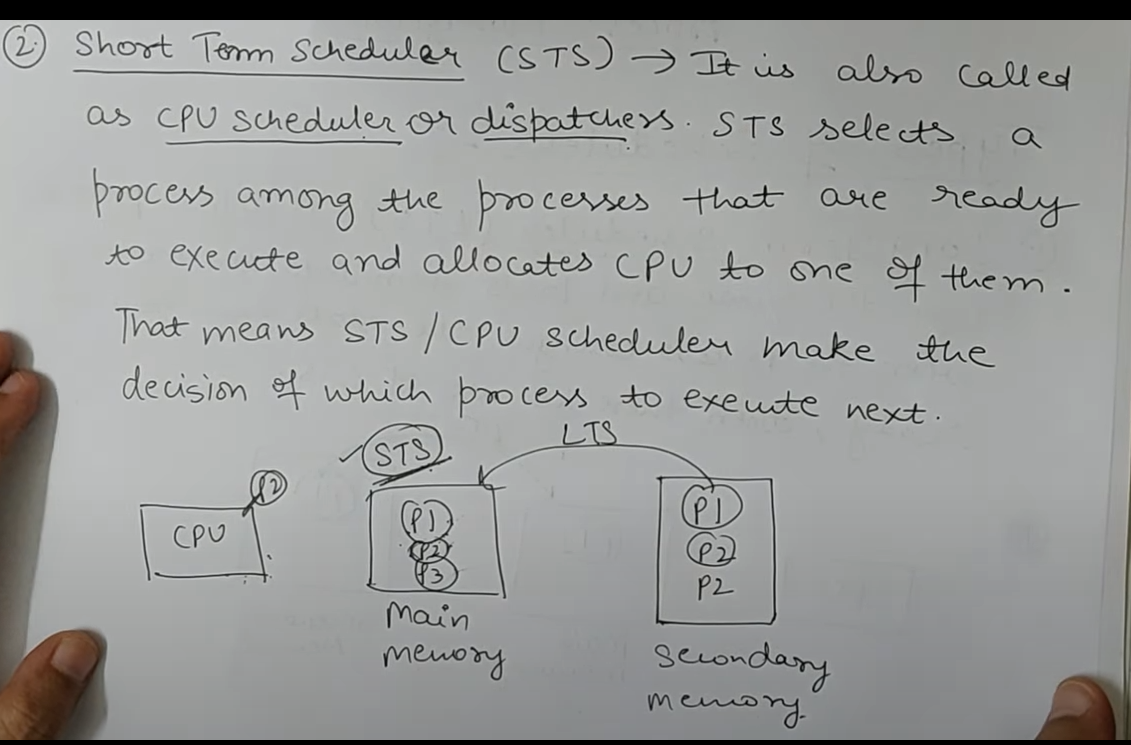 ② Short Term Scheduler (STS) → It is also called
as CPU scheduler or dispatchers. STS selects a
process among the processes that are ready
to execute and allocates CPU to one of them.
That means STS / CPU scheduler make the
decision of which process to execute next.
LTS
STS
P2
CPU
P1
P2
P3
Main
memory
P1
P2
P2
Secondary
memory.